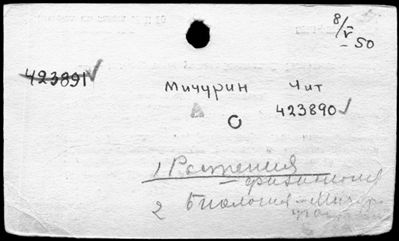 8/V
- 50
423891 ✓
Мичурин Чит
423890 ✓
1 Растения
- физиология
2 Биология - Мичур